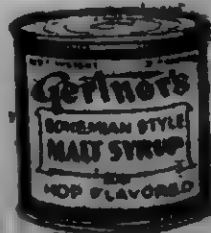 NET WEIGHT
Gertner's
BOHEMIAN STYLE
MALT SYRUP
HOP FLAVORED